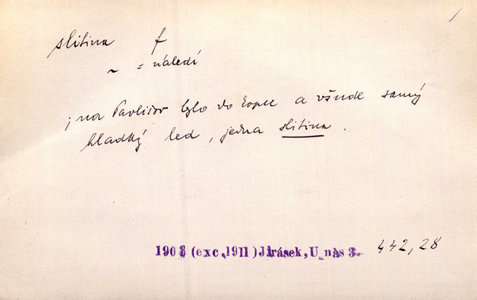 slitina f
~ = náledí
; na Pavlišov bylo do kopce a všude samý
hladký led, jedna slitina.
1903 (exc. 1911) Jirásek, U nás 3. 442, 28